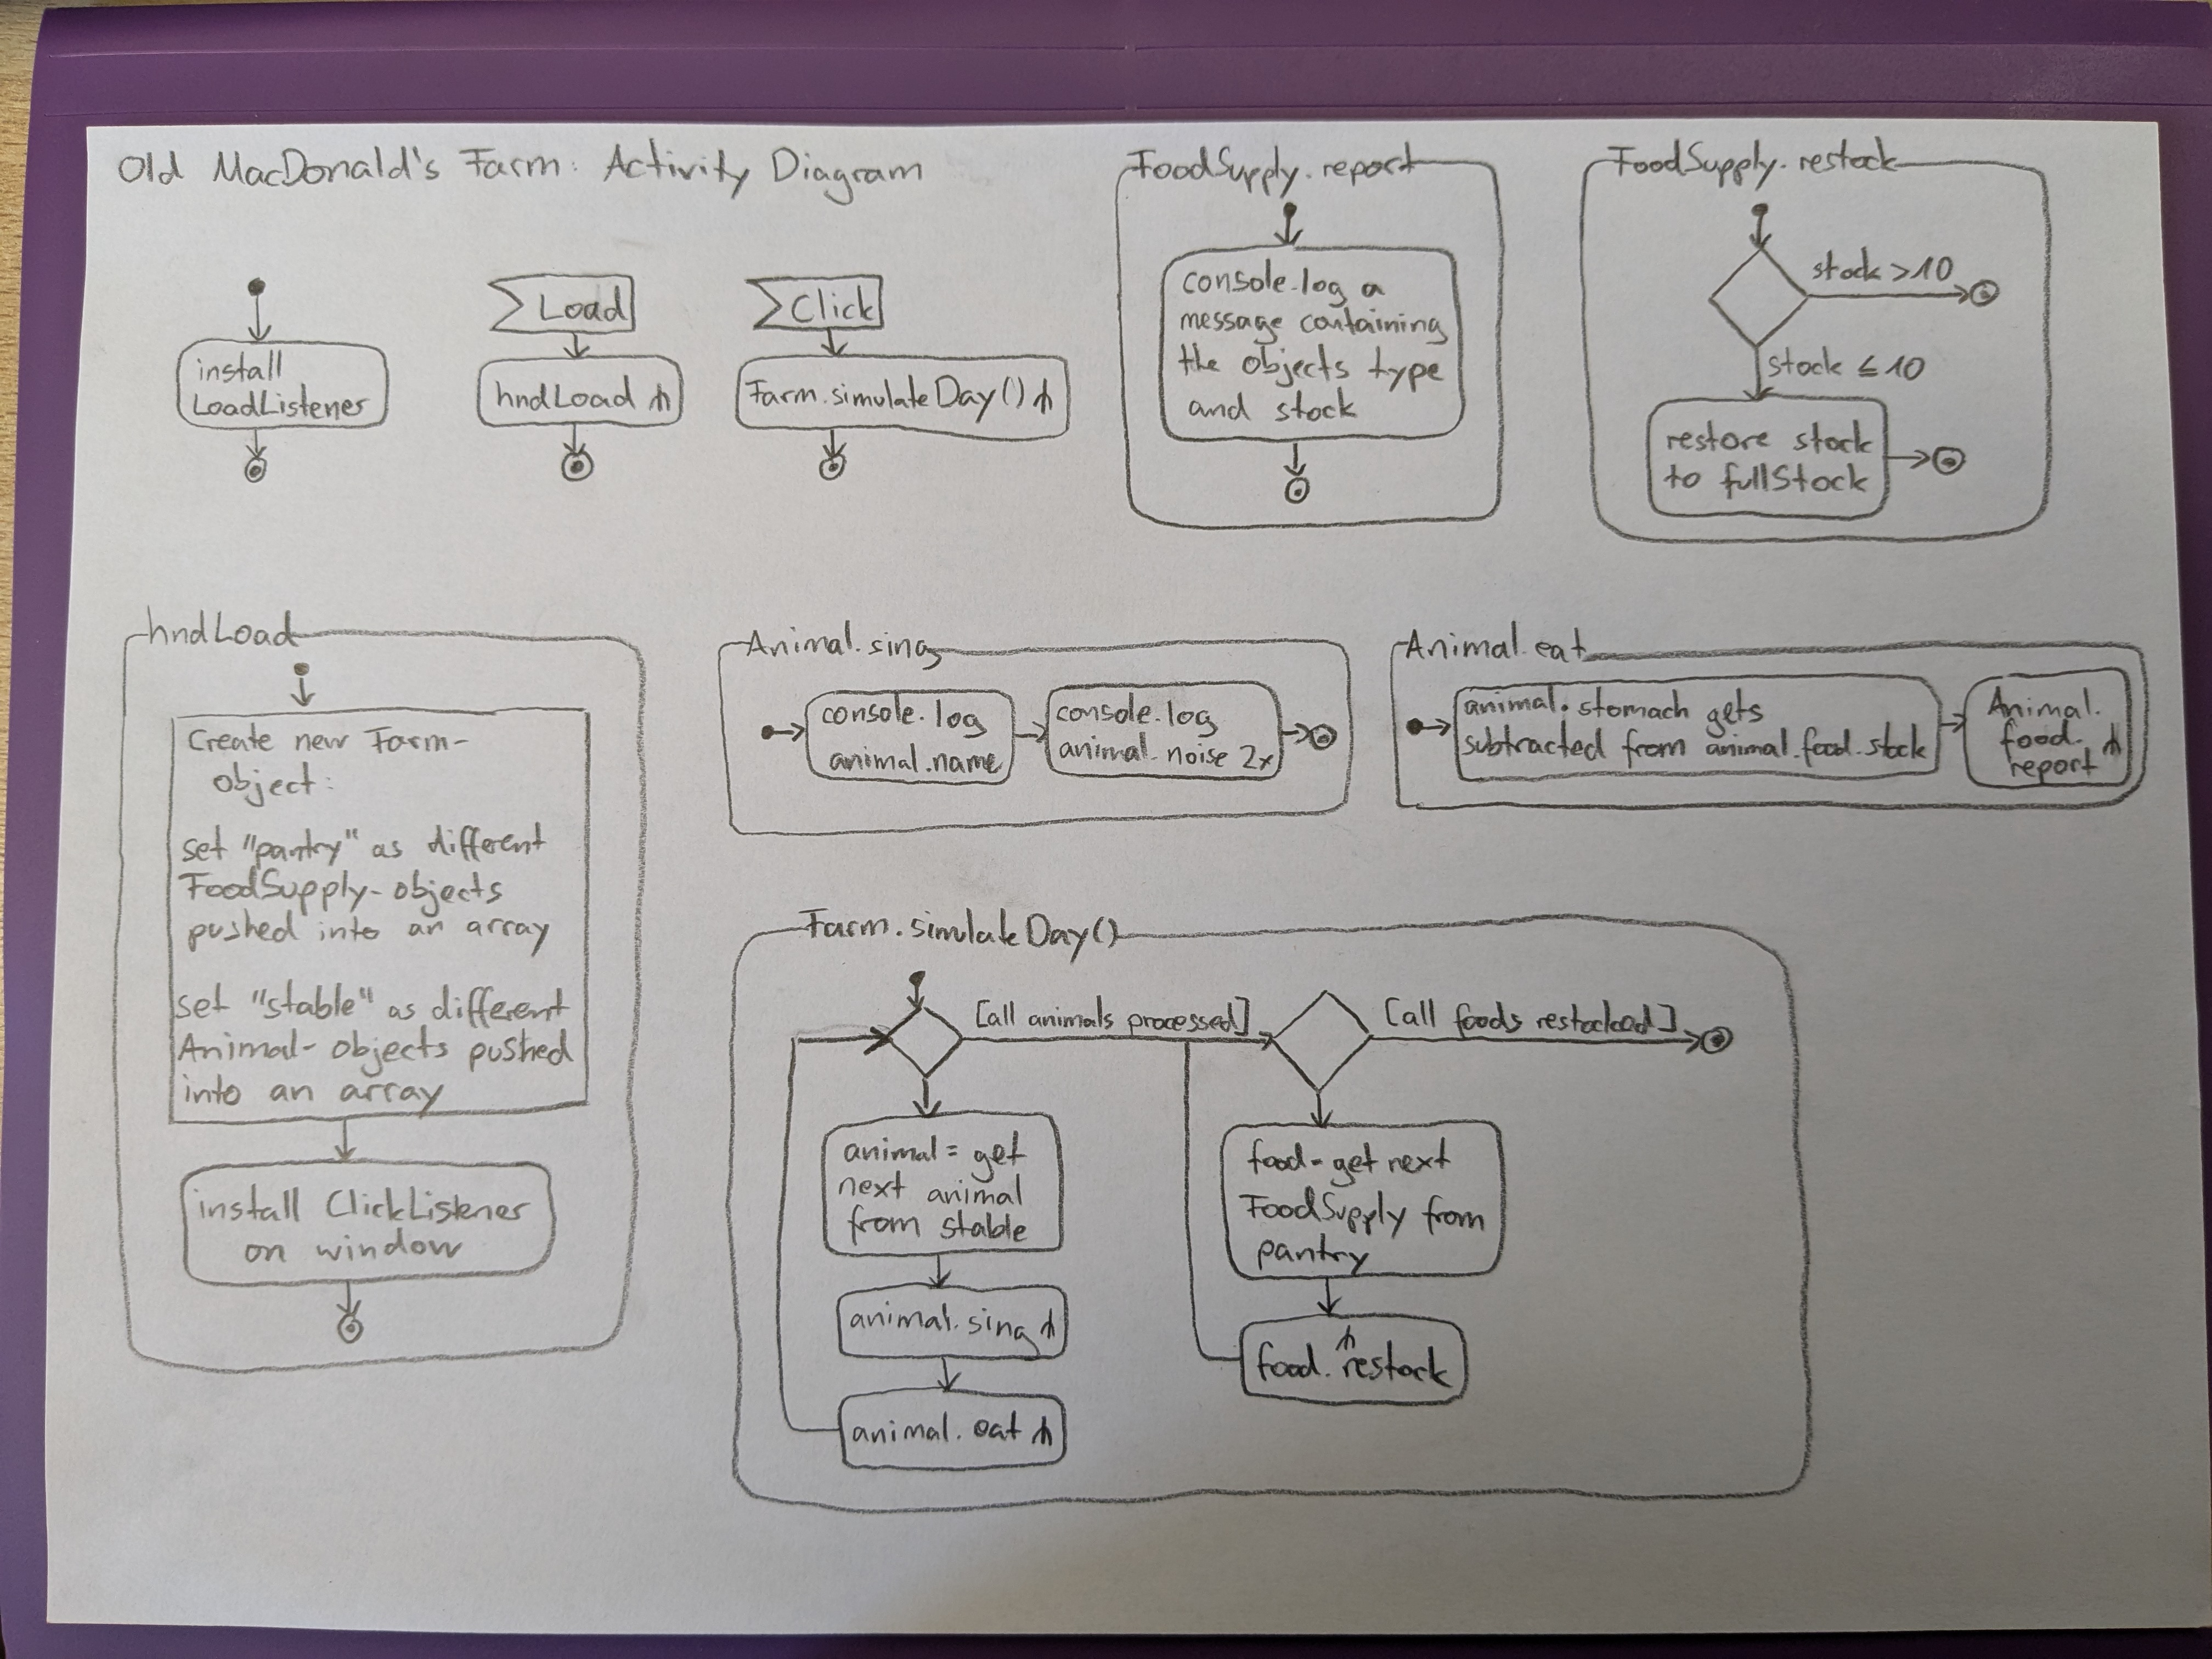 Old MacDonald's Farm: Activity Diagram
install
LoadListener
Load
hndLoad
Click
Farm.simulateDay()
FoodSupply.report
console.log a
message containing
the objects type
and stock
FoodSupply.restock
stock >10
stock ≤ 10
restore stock
to fullStock
hndLoad
Create new Farm-
object:
set "pantry" as different
FoodSupply-objects
pushed into an array
set "stable" as different
Animal-objects pushed
into an array
install ClickListener
on window
Animal.sing
console.log
animal.name
console.log
animal.noise 2x
Animal.eat
animal.stomach gets
subtracted from animal.food.stock
Animal.
food.
report
Farm.simulateDay()
[all animals processed]
[all foods restocked]
animal = get
next animal
from stable
animal.sing
animal.eat
food = get next
FoodSupply from
pantry
food.restock